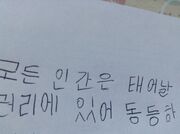 모든 인간은 태어날
권리에 있어 동등하